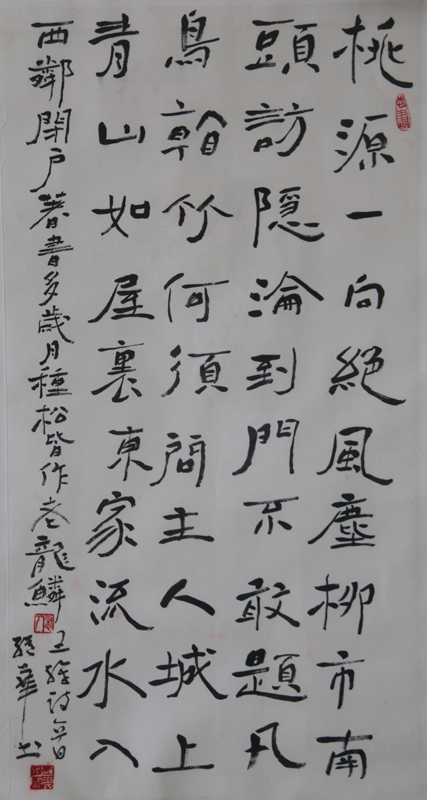 桃源一向絕風塵柳市南
頭訪隱淪到門不敢題凡
鳥看竹何須問主人城上
青山如屋裏東家流水入
西鄰閉戶著書多歲月種松皆作老龍鱗
王維詩
華書